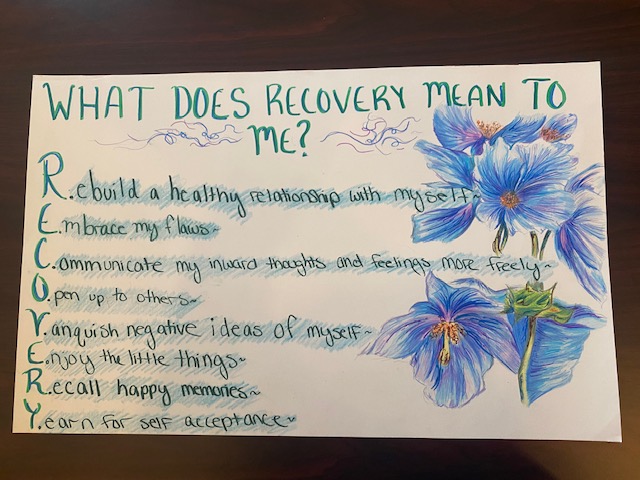 WHAT DOES RECOVERY MEAN TO
ME?
R.ebuild a healthy relationship with myself~
E.mbrace my flaws~
C.ommunicate my inward thoughts and feelings more freely~
O.pen up to others~
V.anquish negative ideas of myself~
E.njoy the little things~
R.ecall happy memories~
Y.earn for self acceptance~